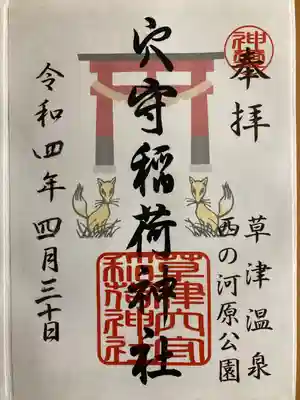 奉拝
草津温泉
西の河原公園
穴守稲荷神社
草津穴守
稲荷神社
令和四年四月三十日